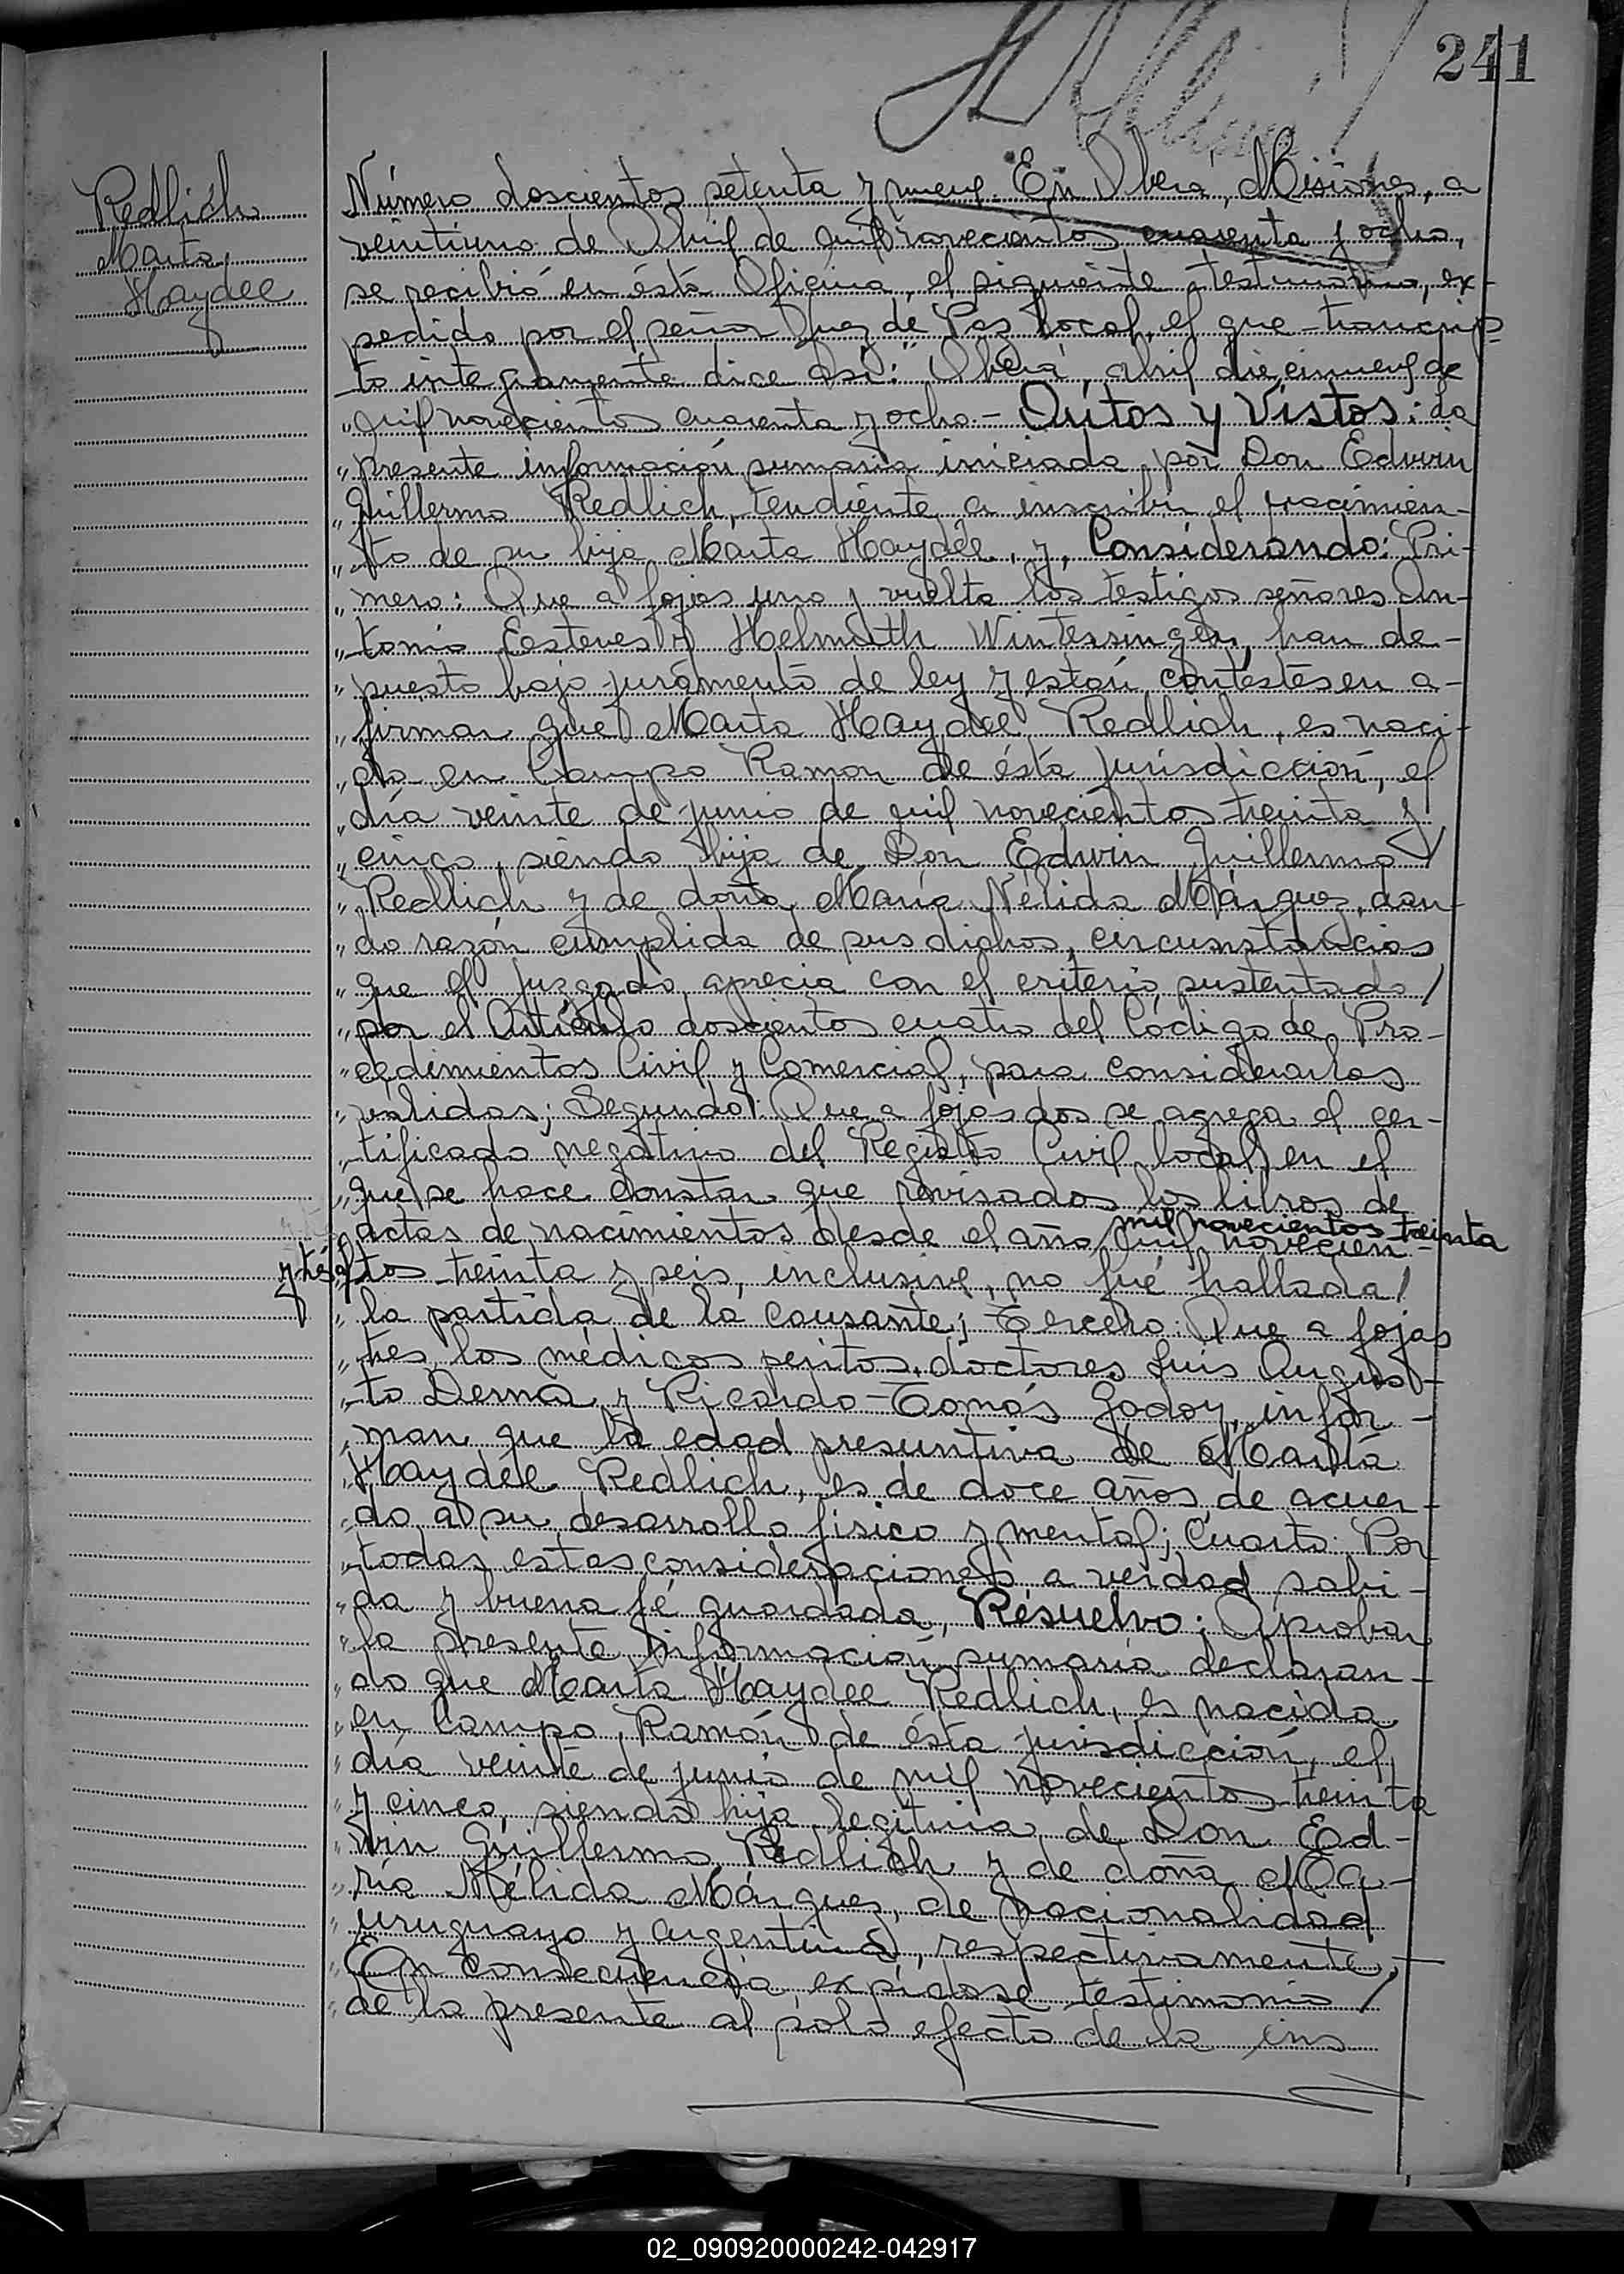 241
Redlich
Marta
Haydée
Número doscientos setenta y nueve. En Oberá, Misiones, a
veintiuno de Abril de mil novecientos cuarenta y ocho,
se recibió en ésta Oficina, el siguiente testimonio, ex-
pedido por el señor Juez de Paz local, el que transcrip-
to integramente dice así: "Oberá, abril diecinueve de
" mil novecientos cuarenta y ocho.- Autos y Vistos: La
" presente información sumaria iniciada por Don Edwin
" Guillermo Redlich, tendiente a inscribir el nacimien-
" to de su hija Marta Haydée, y, Considerando: Pri-
" mero: Que a fojas una y vuelta los testigos señores An-
" tonio Eesteves y Helmuth Wintersinger, han de-
" puesto bajo juramento de ley y están contestes en a-
" firmar que Marta Haydée Redlich, es naci-
" da en Campo Ramon de ésta jurisdicción, el
" día veinte de junio de mil novecientos treinta y
" cinco, siendo hija de Don Edwin Guillermo
" Redlich y de doña María Nélida Márquez, dan-
" do razón cumplida de sus dichos, circunstancias
" que el juzgado aprecia con el criterio sustentado
" por el Artículo doscientos cuatro del Código de Pro-
" cedimientos Civil y Comercial, para considerarlas
" válidas; Segundo: Que a fojas dos se agrega el cer-
" tificado negativo del Registro Civil local, en el
" que se hace constar que revisados los libros de
" actas de nacimientos desde el año mil novecien-
mil novecientos treinta
y tres a
" tos treinta y seis, inclusive, no fué hallada
" la partida de la causante; Tercero: Que a fojas
" tres, los médicos peritos, doctores Luis Augus-
" to Derna y Ricardo Tomás Godoy, infor-
" man que la edad presuntiva de Marta
" Haydée Redlich, es de doce años de acuer-
" do a su desarrollo fisico y mental; Cuarto: Por
" todas estas consideraciones a verdad sabi-
" da y buena fé guardada, Resuelvo: Aprobar
" la presente información sumaria declaran-
" do que Marta Haydée Redlich, es nacida
" en Campo Ramón de ésta jurisdicción, el
" día veinte de junio de mil novecientos treinta
" y cinco, siendo hija legitima de Don Ed-
" win Guillermo Redlich y de doña Ma-
" ría Nélida Márquez, de nacionalidad
" uruguayo y argentina, respectivamente.-
" En consecuencia, expídase testimonio
" de la presente al solo efecto de la ins
02_090920000242-042917